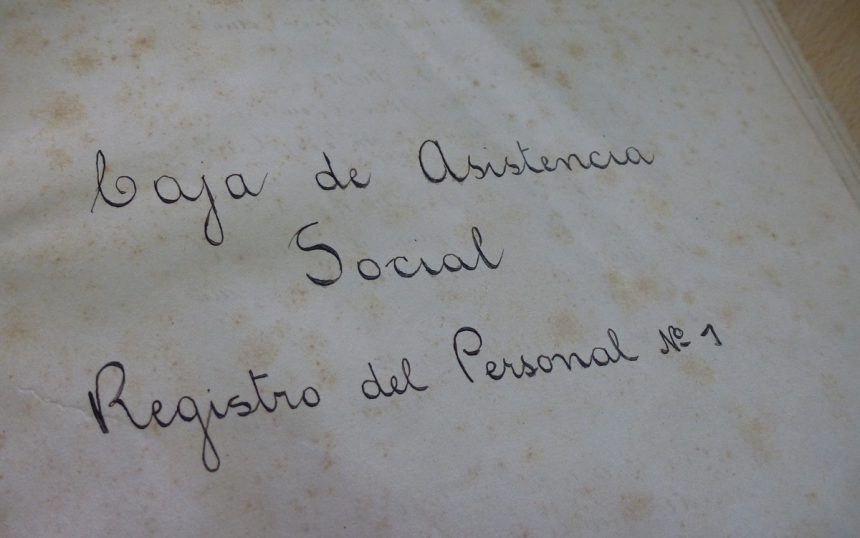 Caja de Asistencia
Social
Registro del Personal Nº 1